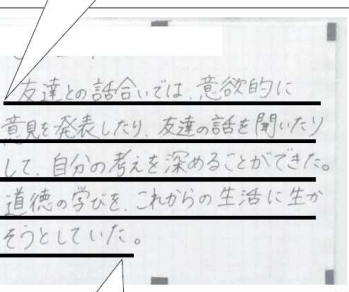 友達との話合いでは、意欲的に
意見を発表したり、友達の話を聞いたり
して、自分の考えを深めることができた。
道徳の学びを、これからの生活に生か
そうとしていた。